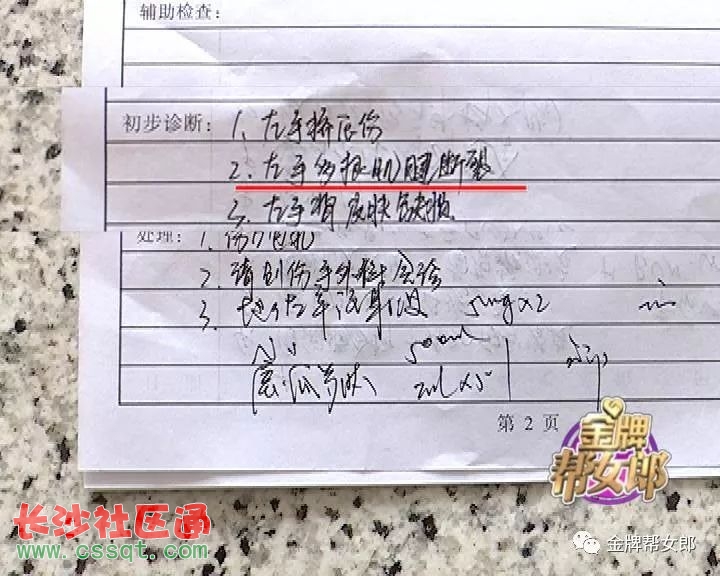 辅助检查:
初步诊断: 1、左手挤压伤
2、左手多根肌腱断裂
3、左手背皮肤缺损
处理: 1.
2.请创伤手外科会诊
3. 地佐辛注射液 5mg×2
N.S
2ml×5
第 2 页
金牌
帮女郎
长沙社区通
www.cssqt.com
金牌帮女郎